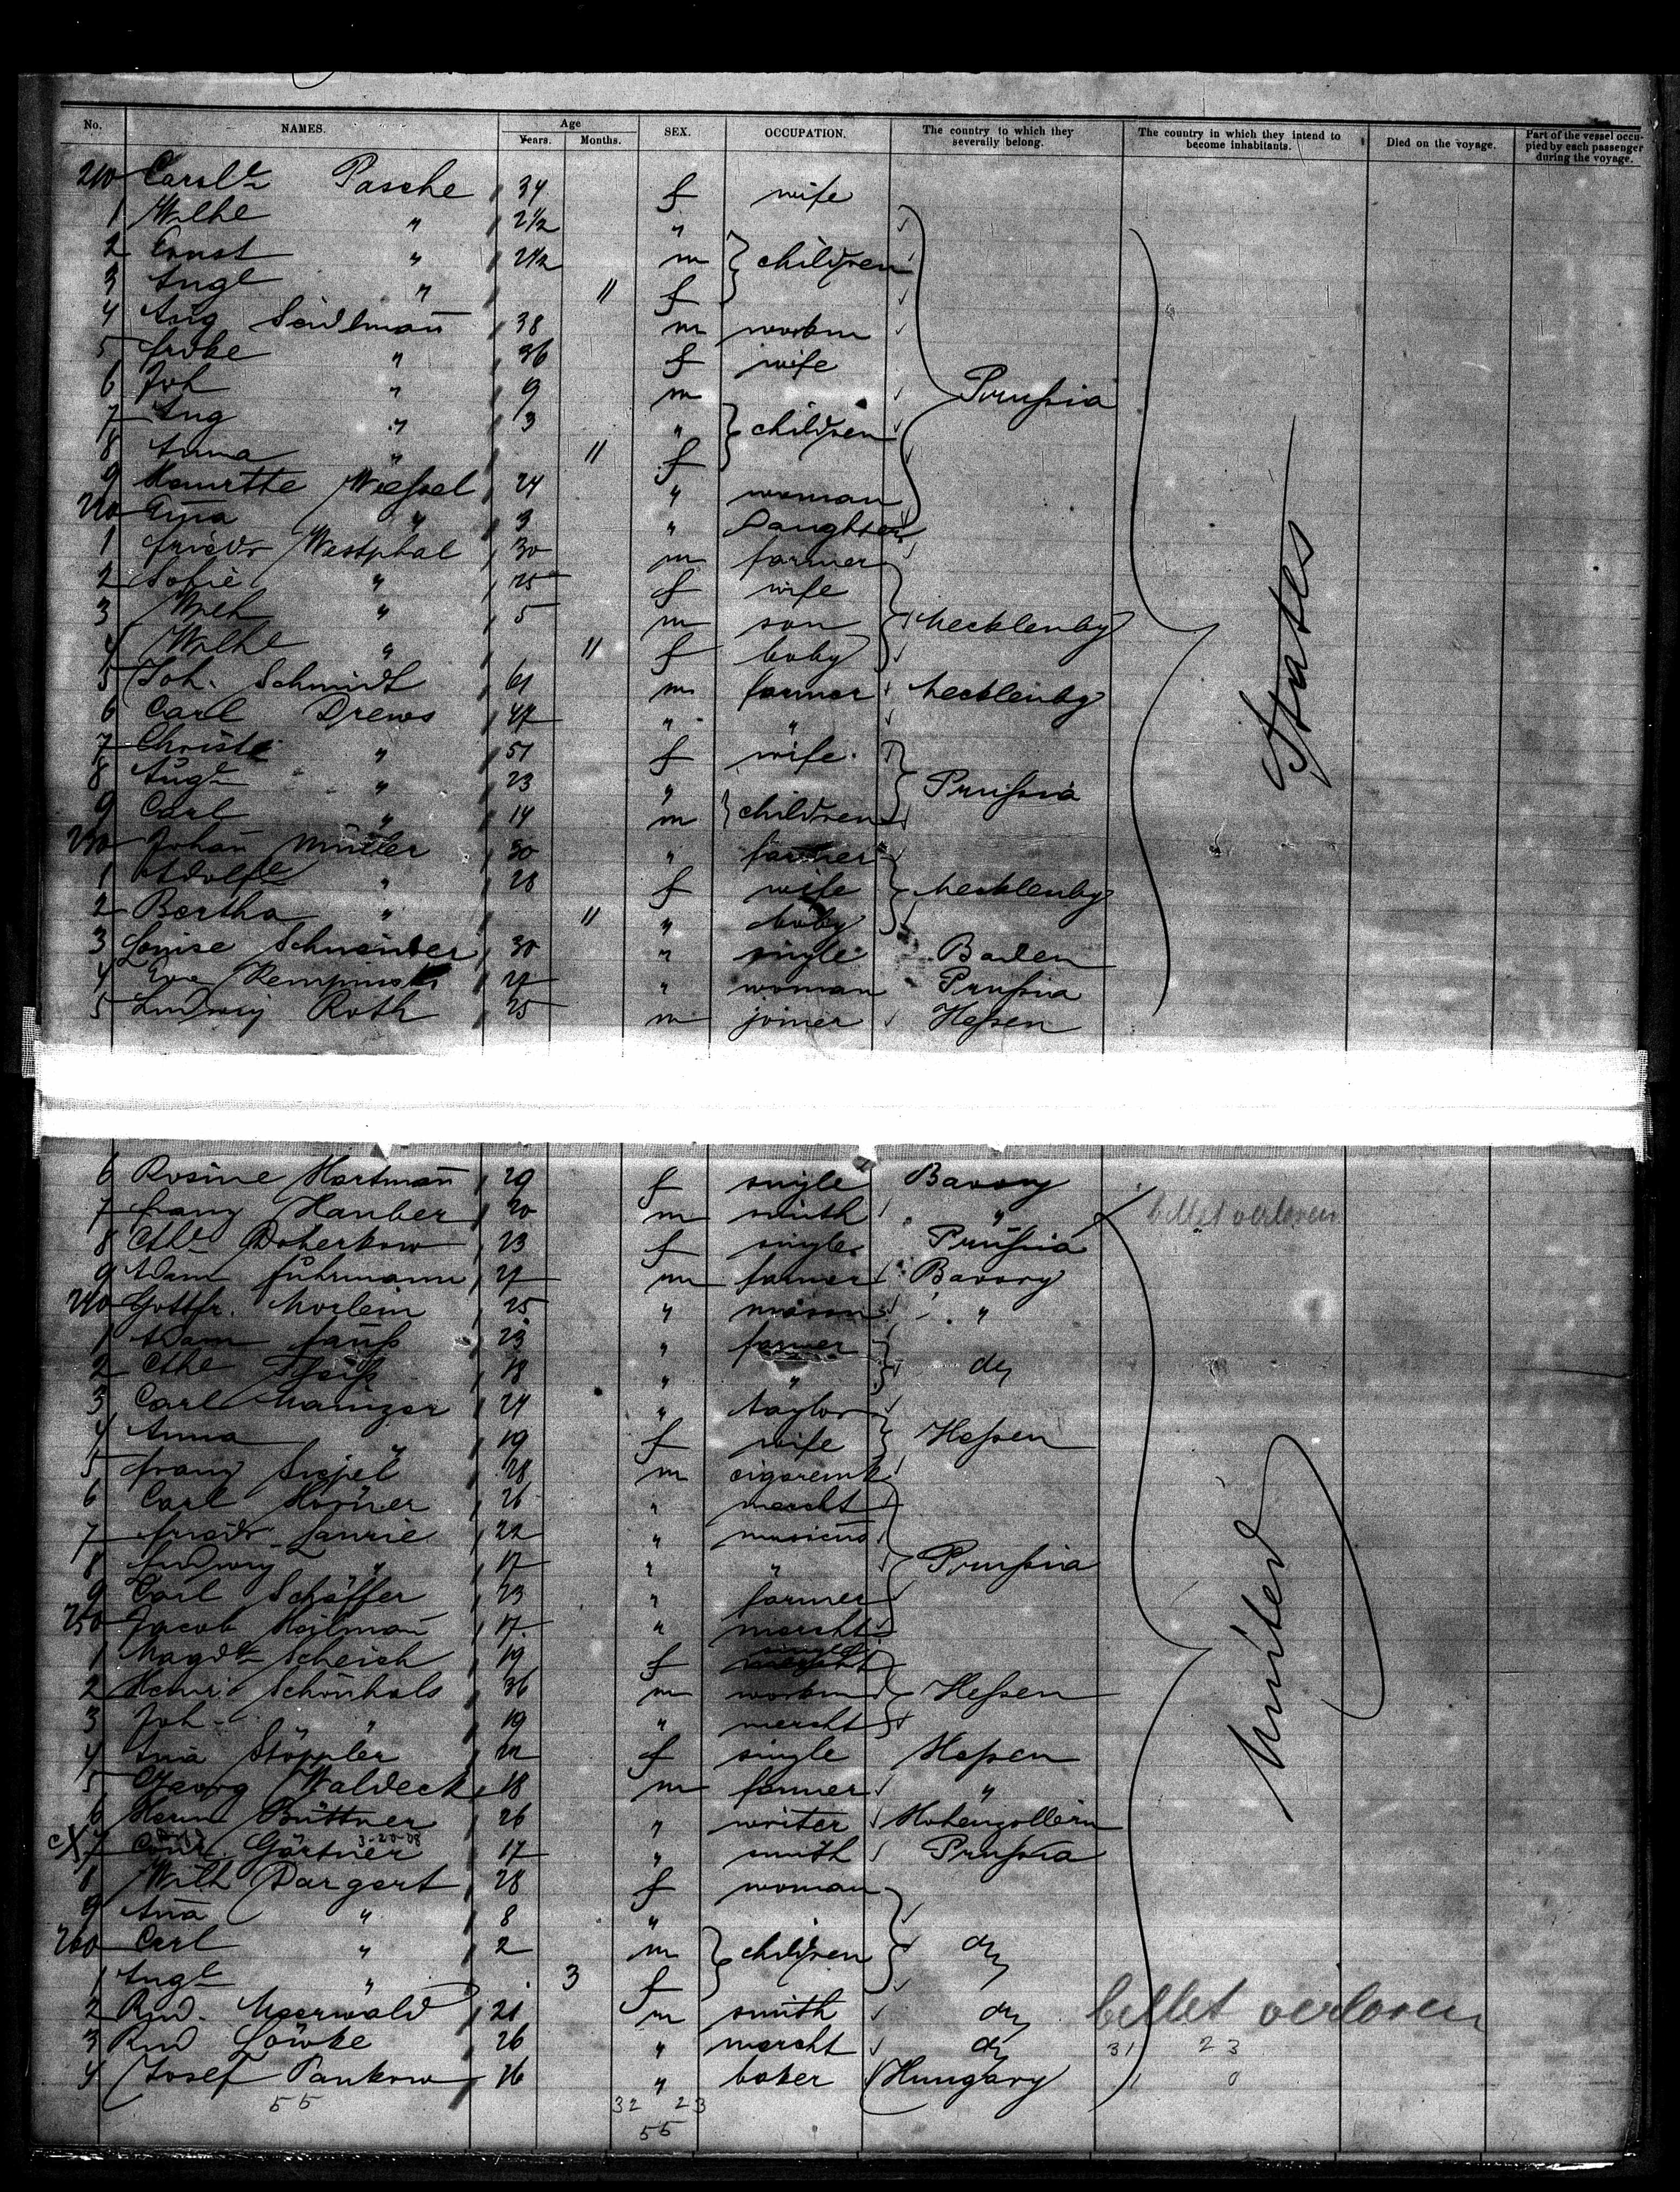 No. NAMES. Age Years. Months. SEX. OCCUPATION. The country to which they severally belong. The country in which they intend to become inhabitants. Died on the voyage. Part of the vessel occupied by each passenger during the voyage.
210 Pasche 34 f wife
1 Wilhe " 2½ "
2 Ernst " 2½ m children
3 Augte " 11 f
4 Aug 38 m workm
5 " 36 f wife
6 Joh " 9 m Prußia
7 Aug " 3 " children
8 Anna " 11 f
9 24 " woman
220 " 3 " Daughter
1 Friedr Westphal 30 m farmer
2 Sofie " 25 f wife
3 Wilh " 5 m son Mecklenbg
4 Wilhe " 11 f baby
5 Joh. Schmidt 61 m farmer Mecklenbg
6 Carl Drews 47 " "
7 Christe " 51 f wife
8 Augte " 23 " Prußia
9 Carl " 14 m children
230 Johañ Müller 30 " farmer
1 Adolfe " 28 f wife Mecklenbg
2 Bertha " 11 " baby
3 Louise Schneider 30 " single Baden
4 Eva 27 " woman Prußia
5 Ludwig Roth 25 m joiner Heßen
States
6 Rosine Hartmañ 29 f single Bavary
7 Franz Hauber 20 m smith " billet verloren
8 Doherkow 23 f single Prußia
9 Adam Führmann 27 m farmer Bavary
240 Gottfr. Morlein 25 " mason "
1 Adam 23 " farmer
2 18 " " do
3 Carl Mainzer 24 " taylor
4 Anna " 19 f wife Heßen
5 Franz 28 m cigaremk
6 Carl 26 " mercht
7 Friedr Laurie 22 "
8 Ludwig " 17 " " Prußia
9 Carl Schäffer 23 " farmer
250 Jacob Heilmañ 17 " mercht
1 Scheich 19 f single
2 Schönhals 36 m workm Heßen
3 Joh " 19 " mercht
4 Aña Stöppler 22 f single Heßen
5 Georg Waldeck 18 m farmer "
6 Herm Büttner 26 " writer Hohenzollern
cX 7 Gärtner 3-20-08 17 " smith Prußia
8 Wilh Dargert 28 f woman
9 Aña " 8 "
260 Carl " 2 m children do
1 Augte " 3 f
2 Rud. Meerwald 21 m smith do billet verloren
3 Rud Löwke 26 " mercht do 31 23
4 Josef Pankow 26 " baker Hungary 1 0
United
55 32 23
55